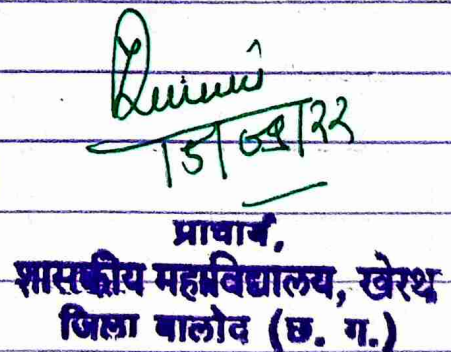 15/09/22
प्राचार्य,
शासकीय महाविद्यालय, खेरथ
जिला बालोद (छ. ग.)